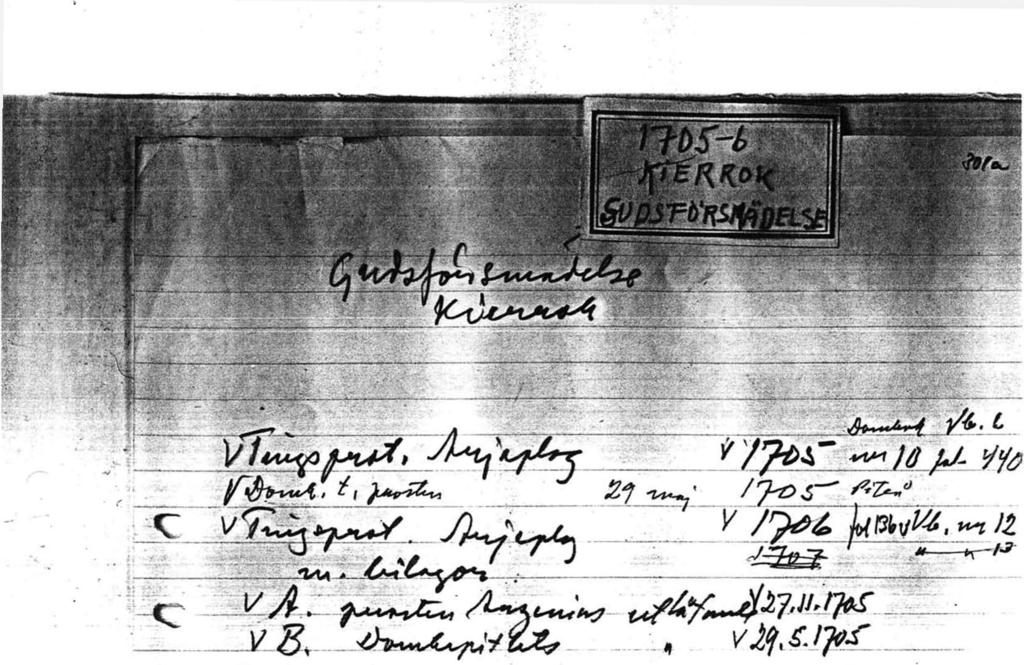 1705-6
KIERROK
GUDSFÖRSMÄDELSE
301a
Gudsförsmädelse
Kierrok
Dombok Vb. l.
V Tingsprot. Arjeplog V 1705 nr 10 fol. 440
V Domk. t. prosten 29 maj 1705 Piteå
V Tingsprot. Arjeplog V 1706 fol 136v Vb. nr 12
1707 " " 13
m. bilagor
V A. prosten utlåtande V 27.11.1705
V B. Domkapitlets " V 29.5.1705